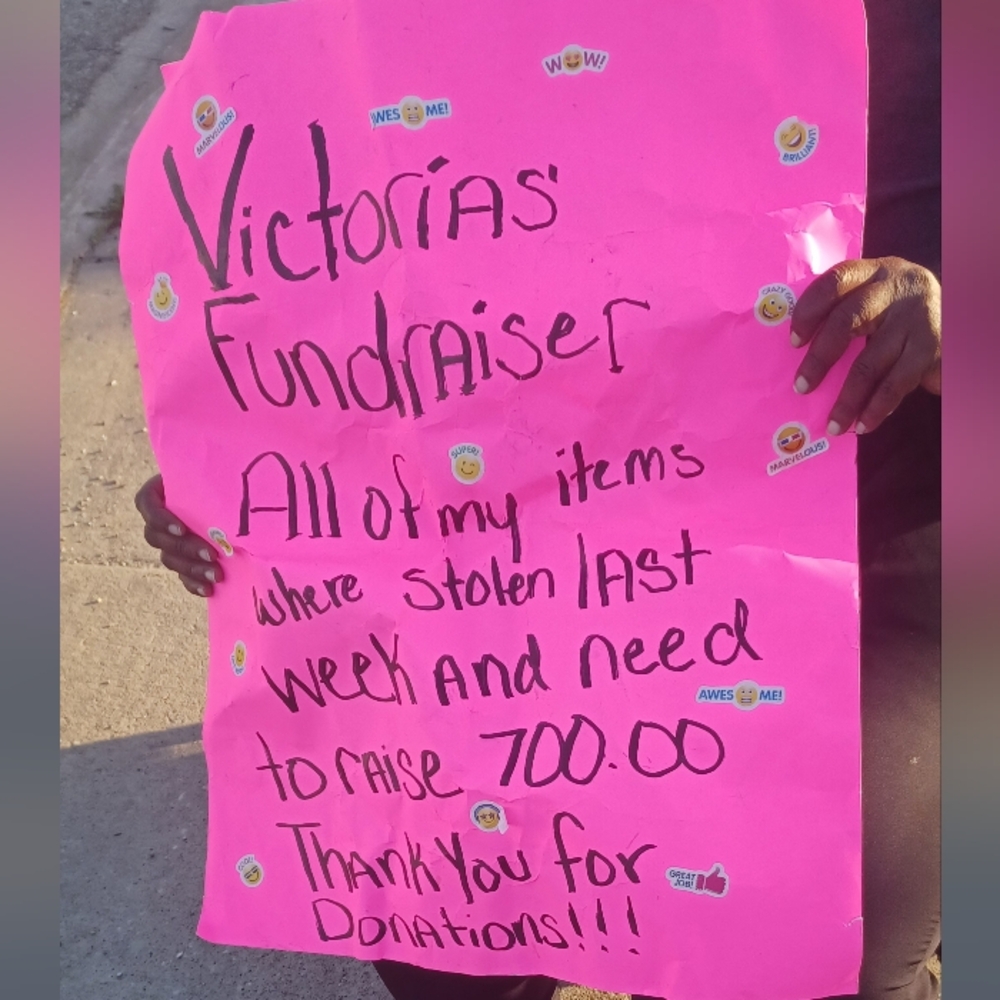 WOW!
AWESOME!
MARVELOUS!
BRILLIANT!
Victorias'
Fundraiser
CRAZY GOOD
MARVELOUS!
SUPER!
All of my items
where stolen last
week and need
AWESOME!
to raise 700.00
Thank You for
GREAT
JOB!
Donations!!!